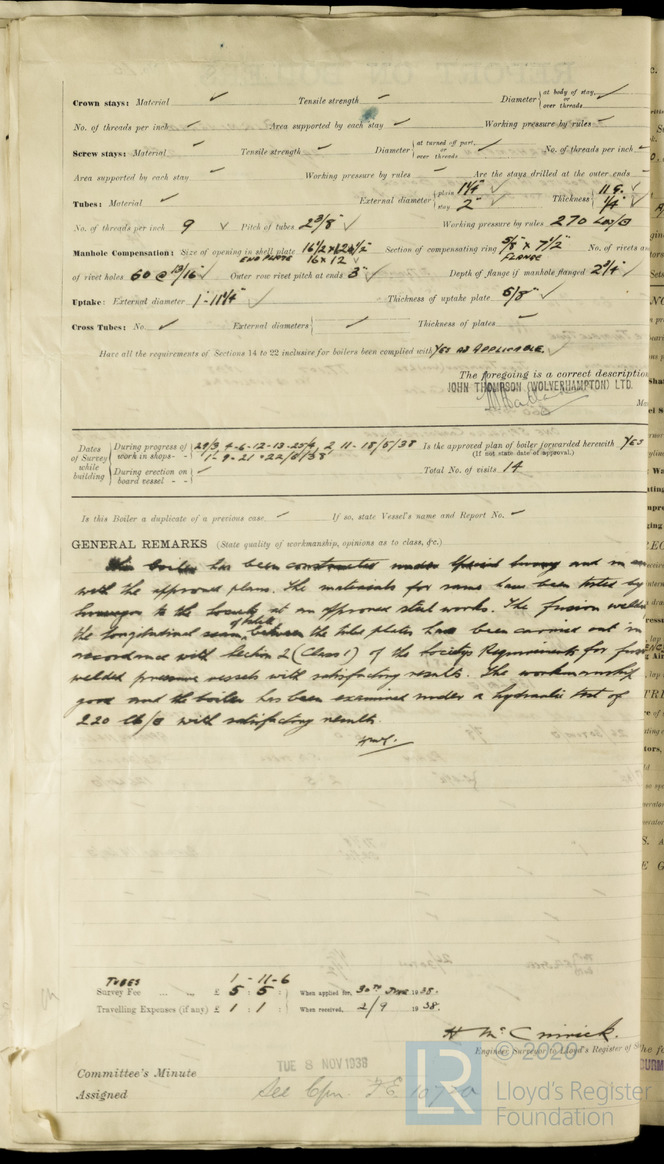 Crown stays: Material ✓ Tensile strength ✓ Diameter { at body of stay, or over threads ✓
No. of threads per inch ✓ Area supported by each stay ✓ Working pressure by rules ✓
Screw stays: Material ✓ Tensile strength ✓ Diameter { at turned off part, or over threads ✓ No. of threads per inch
Area supported by each stay ✓ Working pressure by rules ✓ Are the stays drilled at the outer ends
Tubes: Material ✓ External diameter { plain 1¼" ✓ stay 2" ✓ Thickness { 11 G. ✓ ¼" ✓
No. of threads per inch 9 ✓ Pitch of tubes 2⅜" ✓ Working pressure by rules 270 Lbs/□"
Manhole Compensation: Size of opening in shell plate Section of compensating ring ⅝" x 7½" No. of rivets
END PLATE 16 x 12 ✓ FLANGE
of rivet holes 60 @ 13/16" ✓ Outer row rivet pitch at ends 3" ✓ Depth of flange if manhole flanged 2¾" ✓
Uptake: External diameter 1'-11¼" ✓ Thickness of uptake plate 5/8" ✓
Cross Tubes: No. ✓ External diameters { ✓ Thickness of plates ✓
Have all the requirements of Sections 14 to 22 inclusive for boilers been complied with YES AS APPLICABLE.
The foregoing is a correct description
JOHN THOMPSON (WOLVERHAMPTON) LTD.
Dates of Survey while building { During progress of work in shops - - 29/3, 4-6-12-13-25/4, 2, 11-18/5/38 Is the approved plan of boiler forwarded herewith YES
1-9-21-22/6/38 (If not state date of approval.)
During erection on board vessel - - ✓ Total No. of visits 14
Is this Boiler a duplicate of a previous case ✓ If so, state Vessel's name and Report No. ✓
GENERAL REMARKS (State quality of workmanship, opinions as to class, &c.)
This boiler has been constructed under Special Survey and in
with the approved plans. The materials for same have been tested by
Surveyors to the Society at an approved steel works. The fusion welding
the longitudinal seam, between the tube plates has been carried out in
accordance with Section 2 (Class 1) of the Society's Requirements for
welded pressure vessels with satisfactory results. The workmanship
good and the boiler has been examined under a hydraulic test of
220 Lb/□" with satisfactory results.
TUBES 1 - 11 - 6
Survey Fee ... ... £ 5 : 5 : When applied for, 30TH JUNE 1938.
Travelling Expenses (if any) £ 1 : 1 : When received, 2/9 1938.
Engineer Surveyor to Lloyd's Register of
Committee's Minute TUE 8 NOV 1938
Assigned See
LR © 2020 Lloyd's Register Foundation